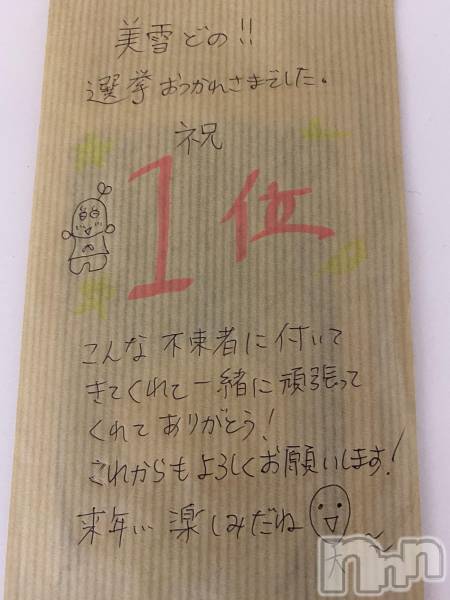 美雪どの!!
選挙おつかれさまでした。
祝
1位
こんな不束者に付いて
きてくれて一緒に頑張って
くれてありがとう!
これからもよろしくお願いします!
来年い楽しみだね
nnn